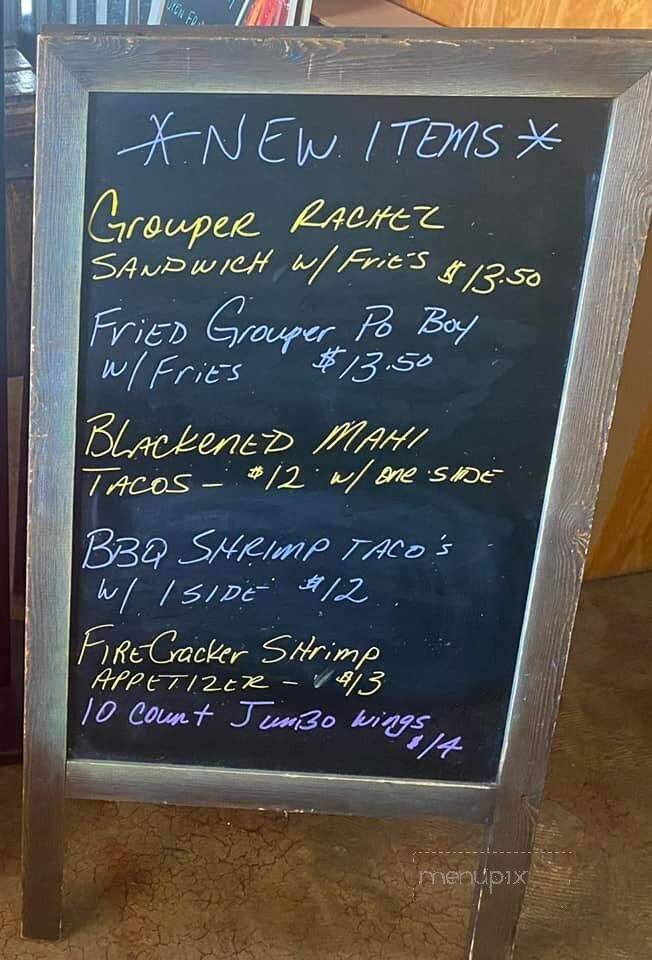 *NEW ITEMS*
Grouper RACHEL
SANDWICH W/ FRIES $13.50
FRIED Grouper Po Boy
W/ FRIES $13.50
BLACKENED MAHI
TACOS - $12 W/ ONE SIDE
BBQ SHRIMP TACO'S
W/ 1 SIDE $12
FIRECracker SHrimp
APPETIZER - $13
10 Count JumBo wings
$14
menupix